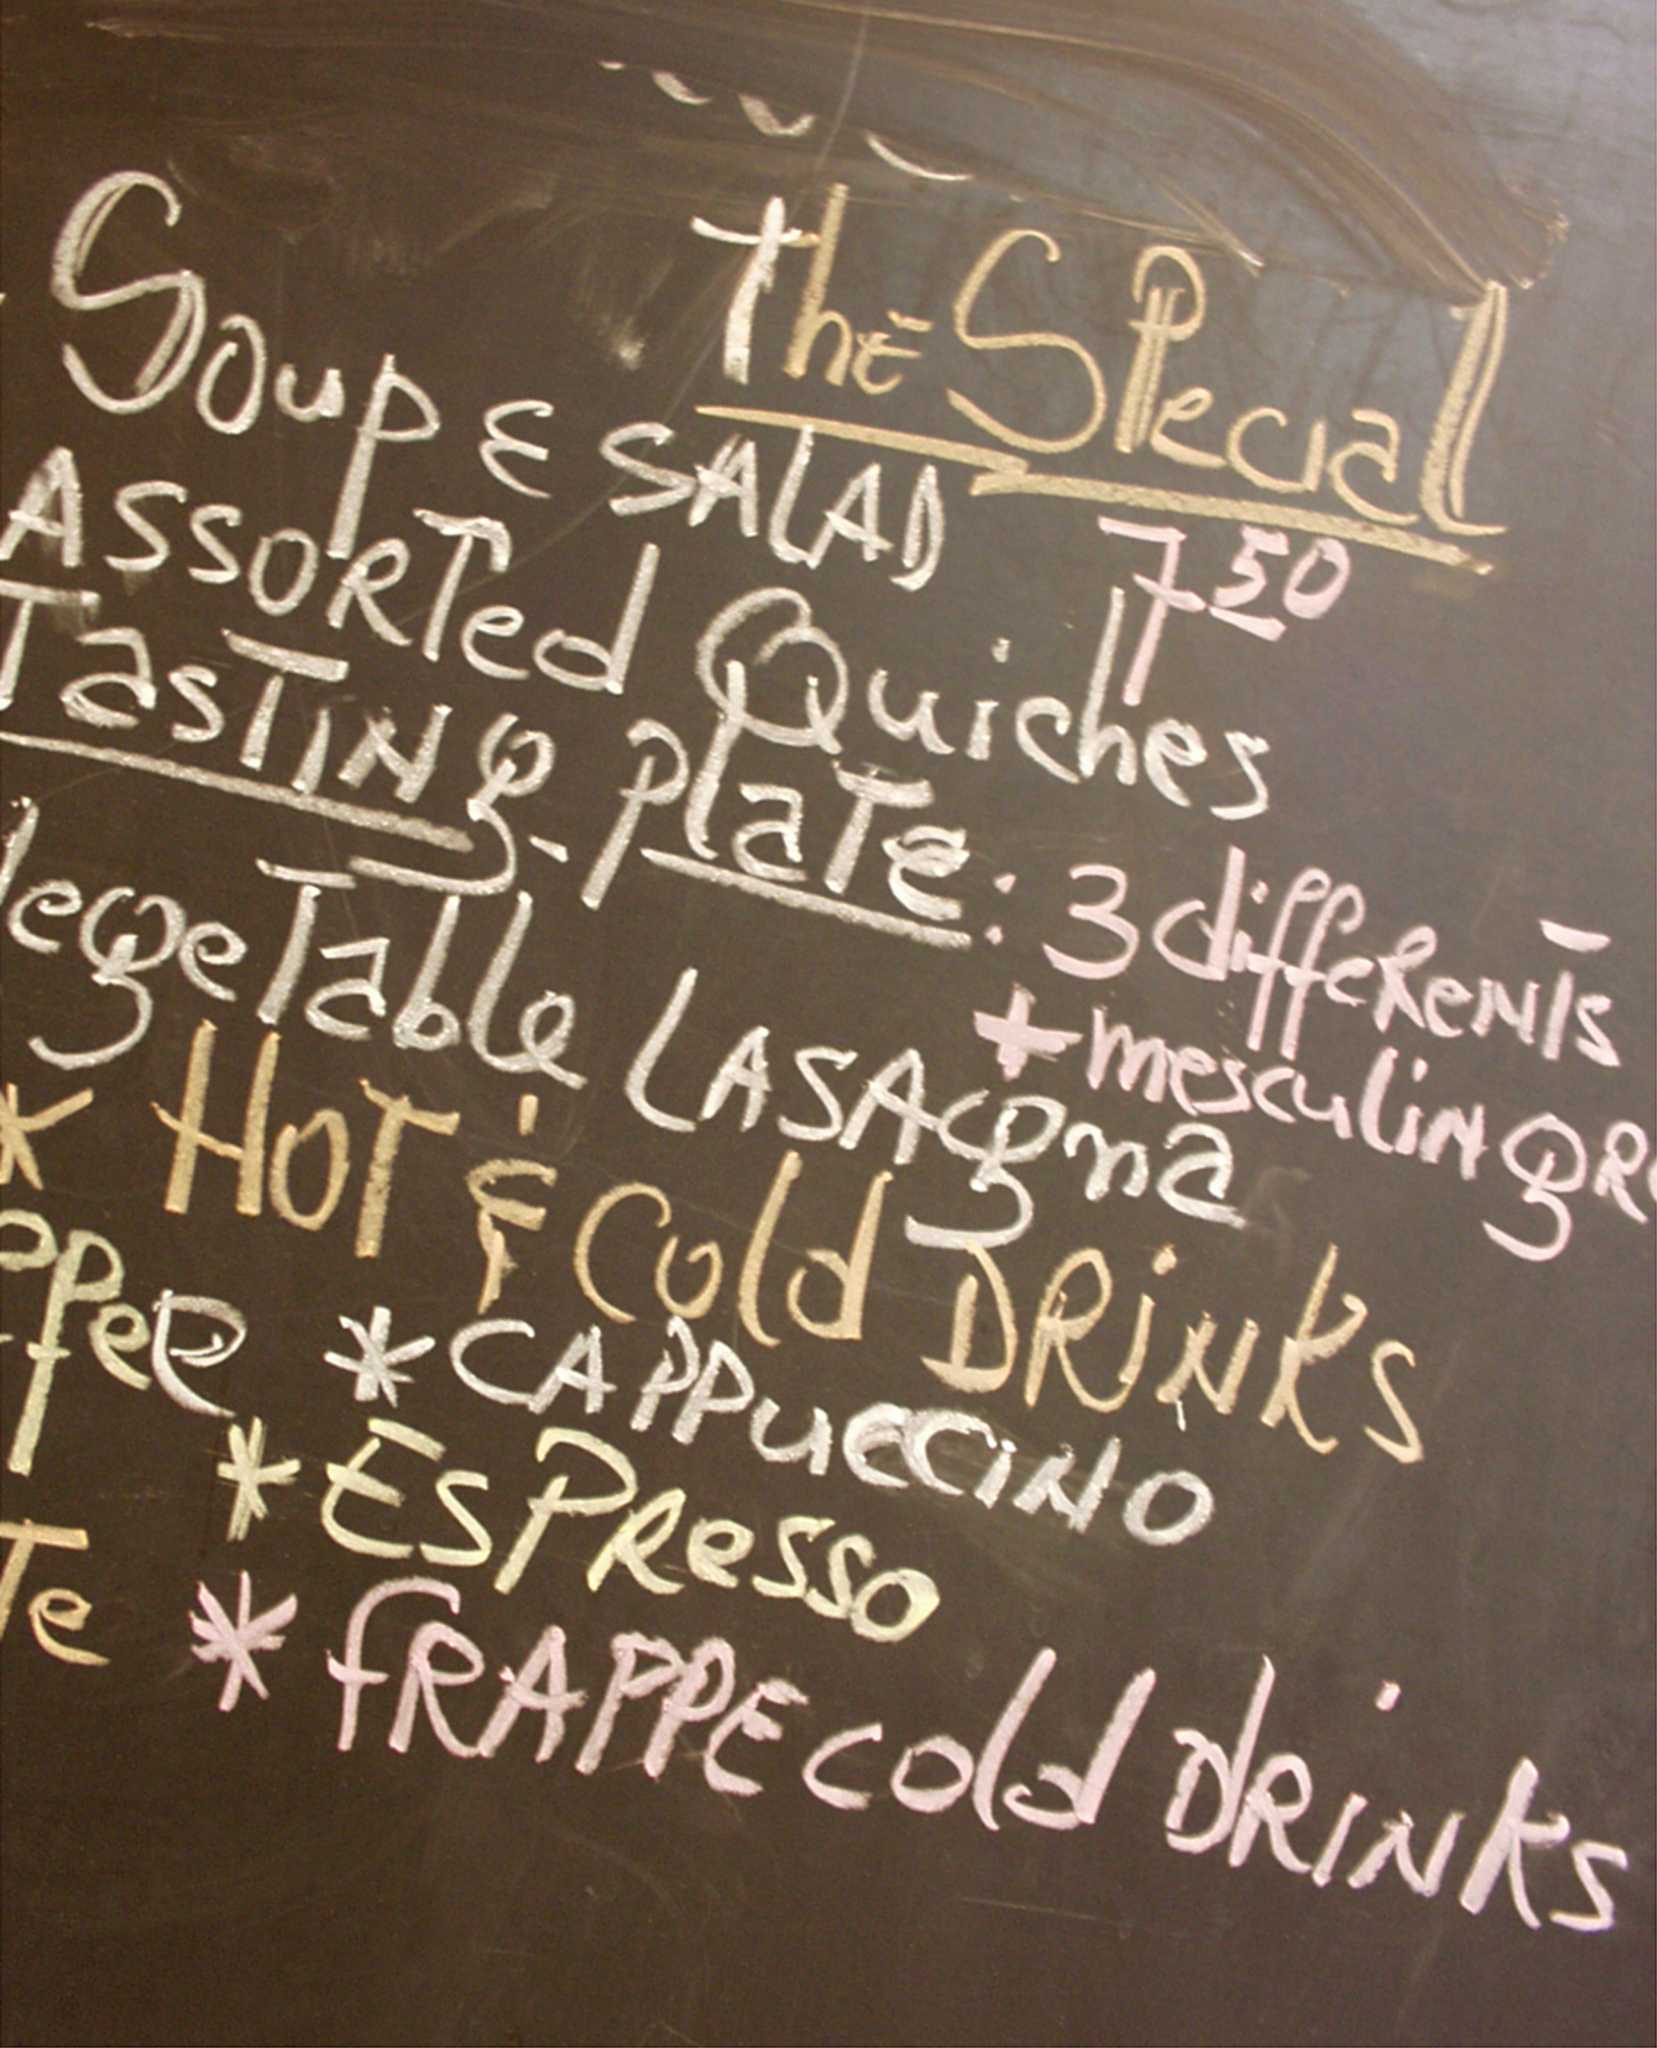 The Special
Soup & SALAD 7 50
ASSORTed Quiches
TasTiNg-plaTe: 3 differenTs
+ mesculin
VegeTable LASAgna
* HoT & Cold DRiNKS
* CAPPUCCiNO
* EsPResso
* fRAPPE cold DRiNKS